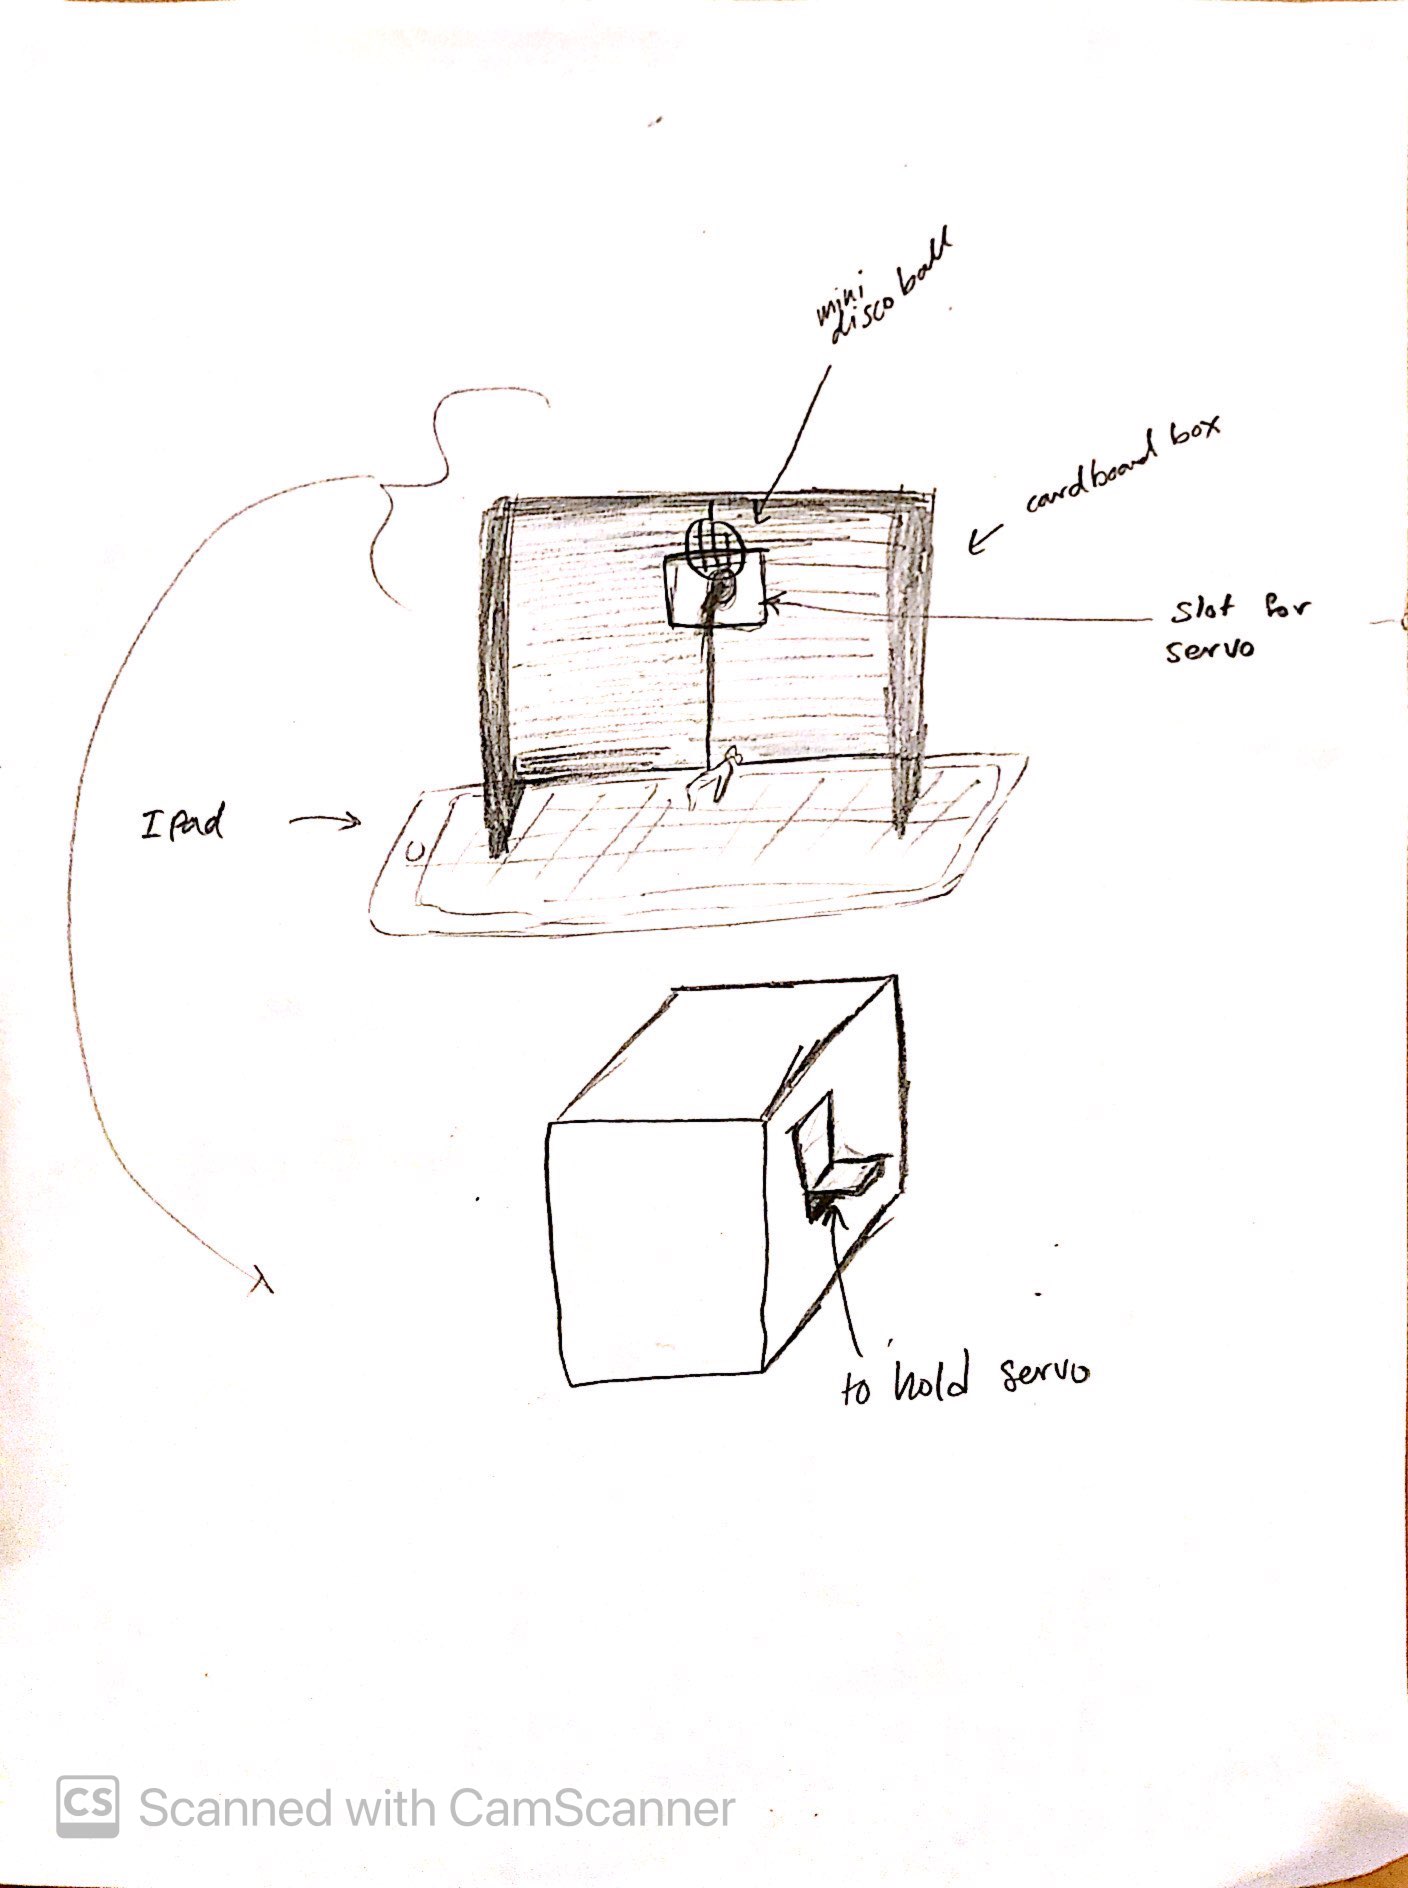 mini
disco ball
cardboard box
slot for
servo
IPad
to hold servo
CS Scanned with CamScanner